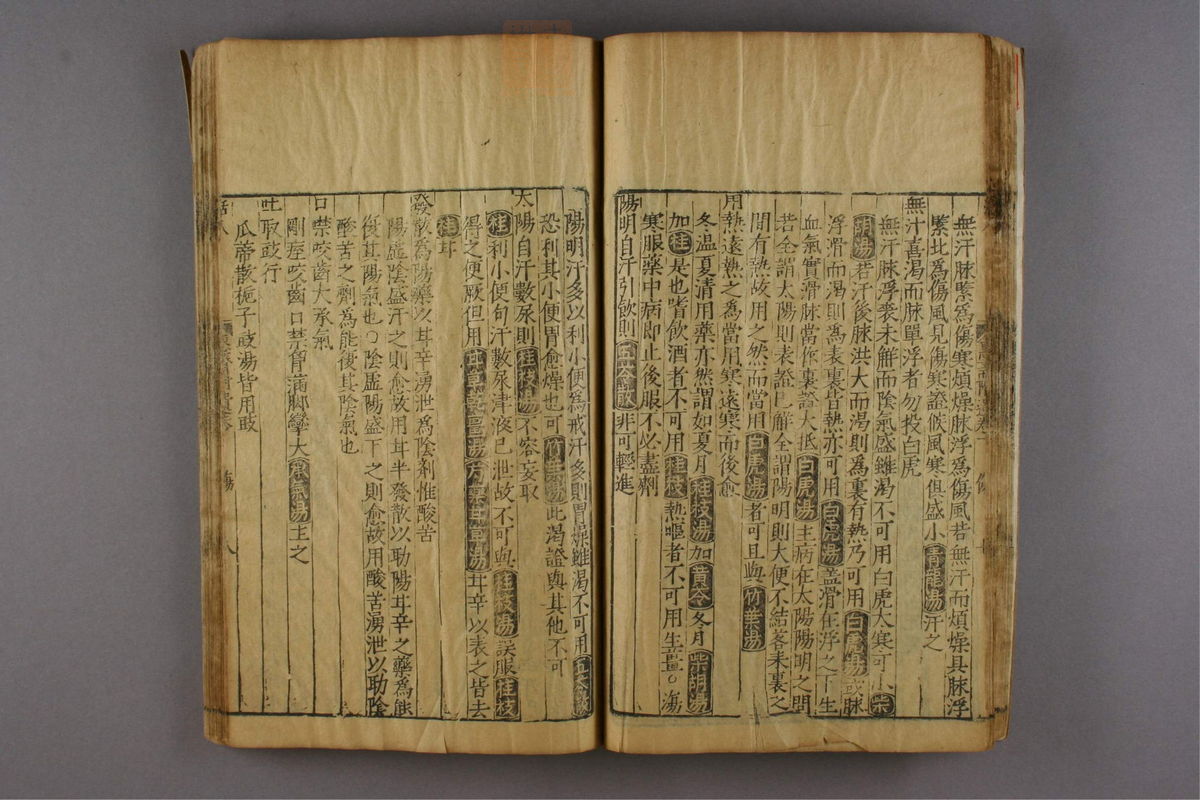 無汗脉緊爲傷寒煩燥脉浮爲傷風若無汗而煩燥具脉浮
緊此爲傷風見傷寒證候風寒俱盛小青龍湯汗之
無汗喜渴而脉單浮者勿投白虎
無汗脉浮表未觧而陰氣盛雖渴不可用白虎大寒可小柴
胡湯若汗後脉洪大而渴則爲裏有熱乃可用白虎湯或脉
浮滑而渴則爲表裏皆熱亦可用白虎湯盖滑在浮之下生
血氣實滑脉當作裏證大抵白虎湯主病在太陽陽明之間
若全謂太陽則表證已觧全謂陽明則大便不結客未裏之
間有熱故用之然而當用白虎湯者可且與竹葉湯
用熱遠熱之爲當用寒遠寒而後愈
冬温夏清用藥亦然謂如夏月桂枝湯加黄芩冬月柴胡湯
加桂是也嗜飲酒者不可用桂枝熱嘔者不可用生薑○湯
寒服藥中病即止後服不必盡劑
陽明自汗引飲則五苓散非可輕進
陽明汗多以利小便爲戒汗多則胃燥雖渴不可用五苓散
恐利其小便胃愈燥也可竹葉湯此渴證與其他不可
太陽自汗數尿則桂枝湯不容妄取
桂利小便句汗數尿津液已泄故不可與桂枝湯誤服桂枝
得之便厥但用甘草乾薑湯芍藥甘草湯甘辛以表之皆去
桂耳
發散爲陽藥以甘辛湧泄爲陰劑惟酸苦
陽虚陰盛汗之則愈故用甘辛發散以助陽甘辛之藥爲能
復其陽氣也○陰虚陽盛下之則愈故用酸苦湧泄以助陰
酸苦之劑爲能復其陰氣也
口禁咬齒大承氣
剛痓咬齒口禁胷病脚攣大承氣湯主之
吐取豉行
瓜蒂散梔子豉湯皆用豉